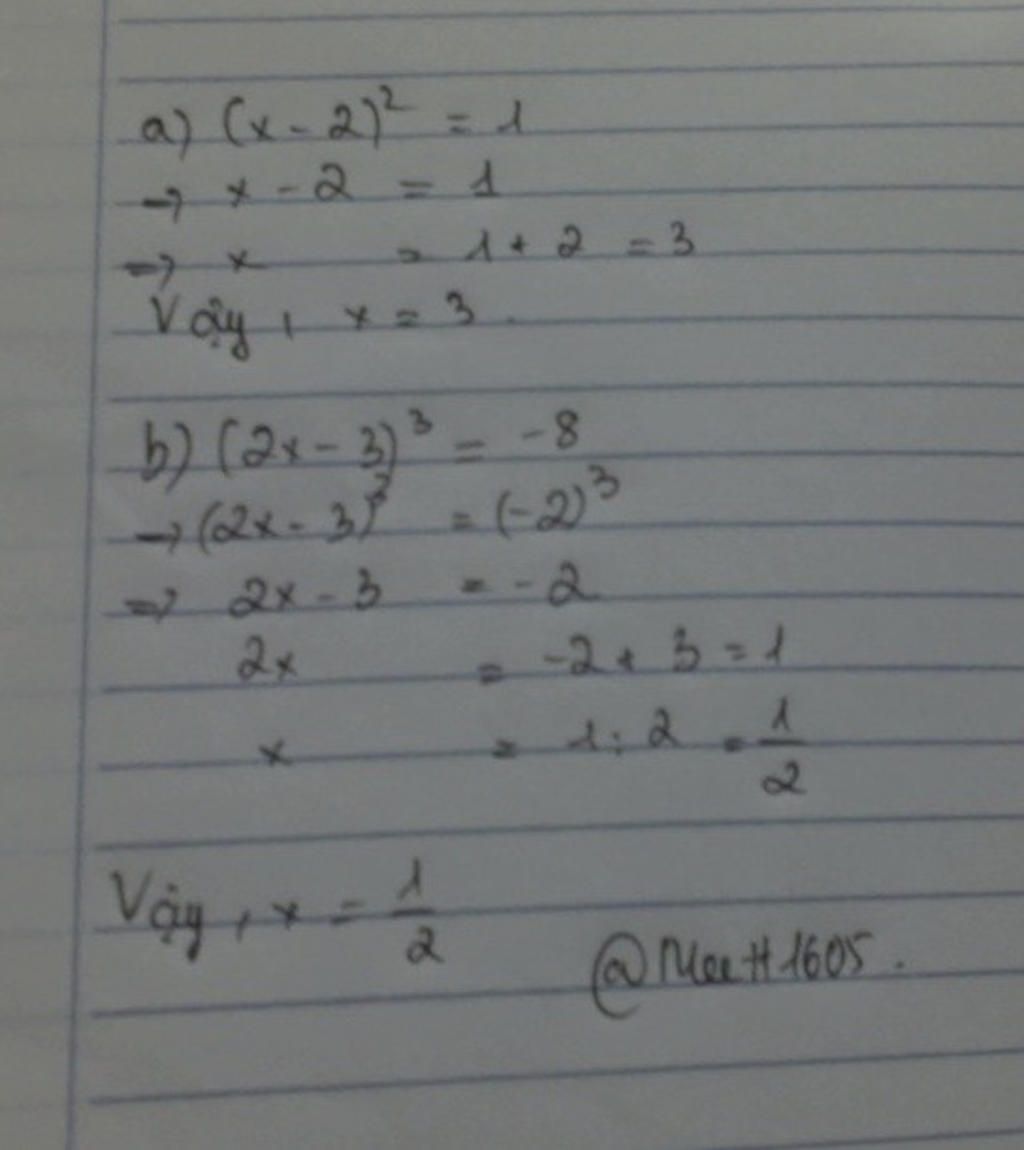 a) (x - 2)² = 1
→ x - 2 = 1
→ x = 1 + 2 = 3
Vậy, x = 3.
b) (2x - 3)³ = -8
→ (2x - 3)³ = (-2)³
→ 2x - 3 = -2
2x = -2 + 3 = 1
x = 1 : 2 = 1/2
Vậy, x = 1/2